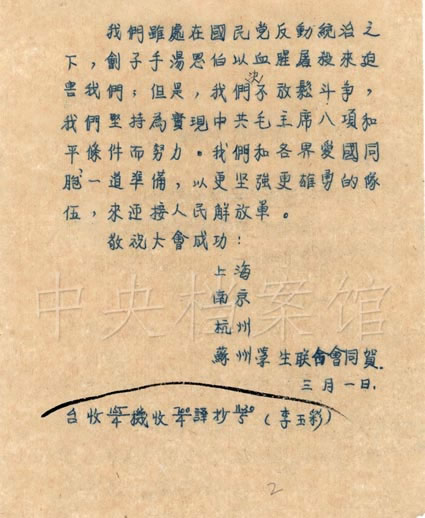 我們雖處在國民党反動統治之
下，劊子手湯恩伯以血腥屠殺來迫
害我們；但是，我們决不放鬆斗争，
我們堅持為實現中共毛主席八項和
平條件而努力。我們和各界愛國同
胞一道準備，以更坚強更雄勇的隊
伍，來迎接人民解放軍。
敬祝大會成功！
上海
南京
杭州
蘇州學生联合會同賀.
三月一日.
中央档案馆
台收 機收 譯抄 （李玉彩）
2